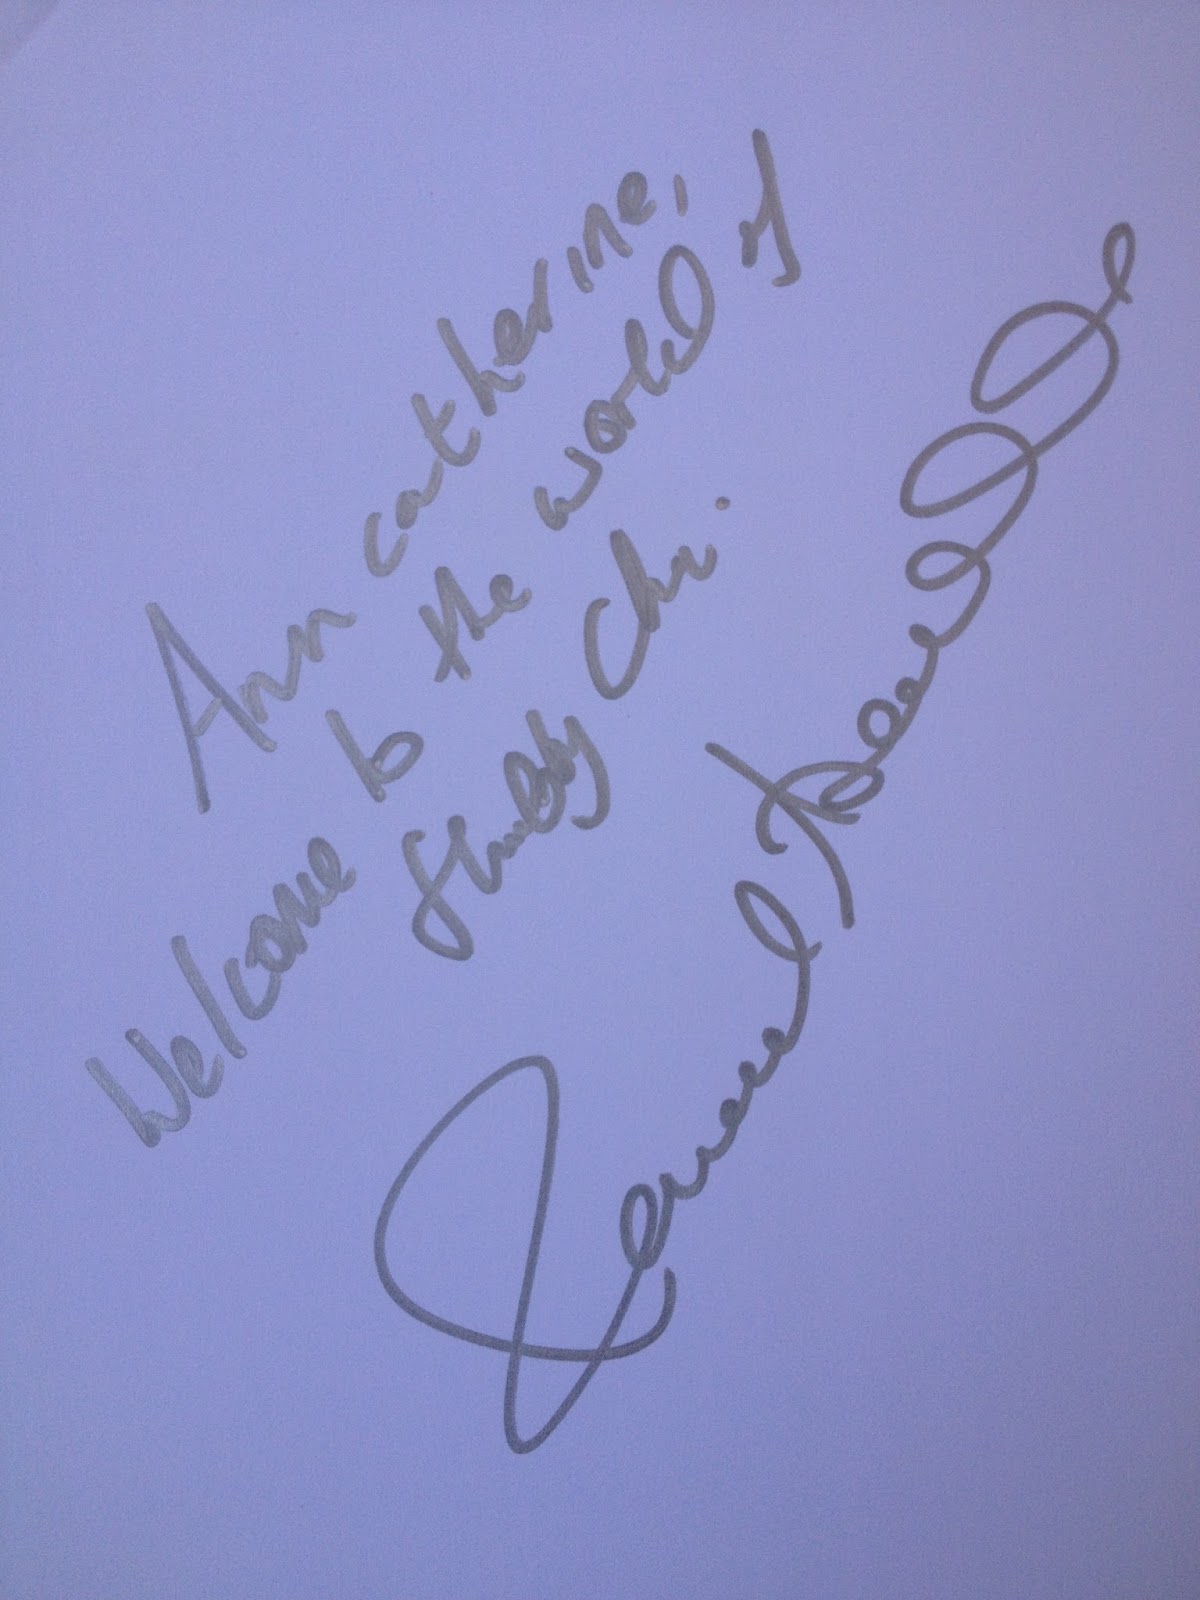 Ann catherine,
Welcome to the world of
Shabby Chic.
Rachel